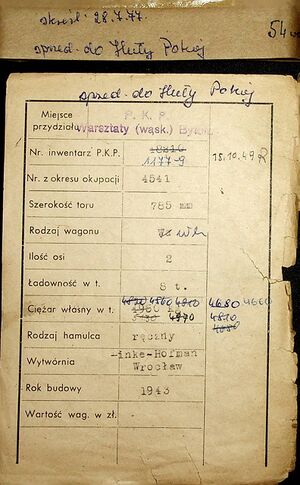 skreśl. 28.7.77.
54
sprzed. do Huty Pokój
sprzed. do Huty Pokój
Miejsce przydziału P. K. P. Warsztaty (wąsk.)
Nr. inwentarz P.K.P. 18216
1177-9 15.10.49
Nr. z okresu okupacji 4541
Szerokość toru 785 mm
Rodzaj wagonu
Ilość osi 2
Ładowność w t. 5 t.
4820 4860 4910 4680 4660
Ciężar własny w t. 4960
4970 4810
4680
Rodzaj hamulca ręczny
Wytwórnia inke-Hofman
Wrocław
Rok budowy 1943
Wartość wag. w zł.